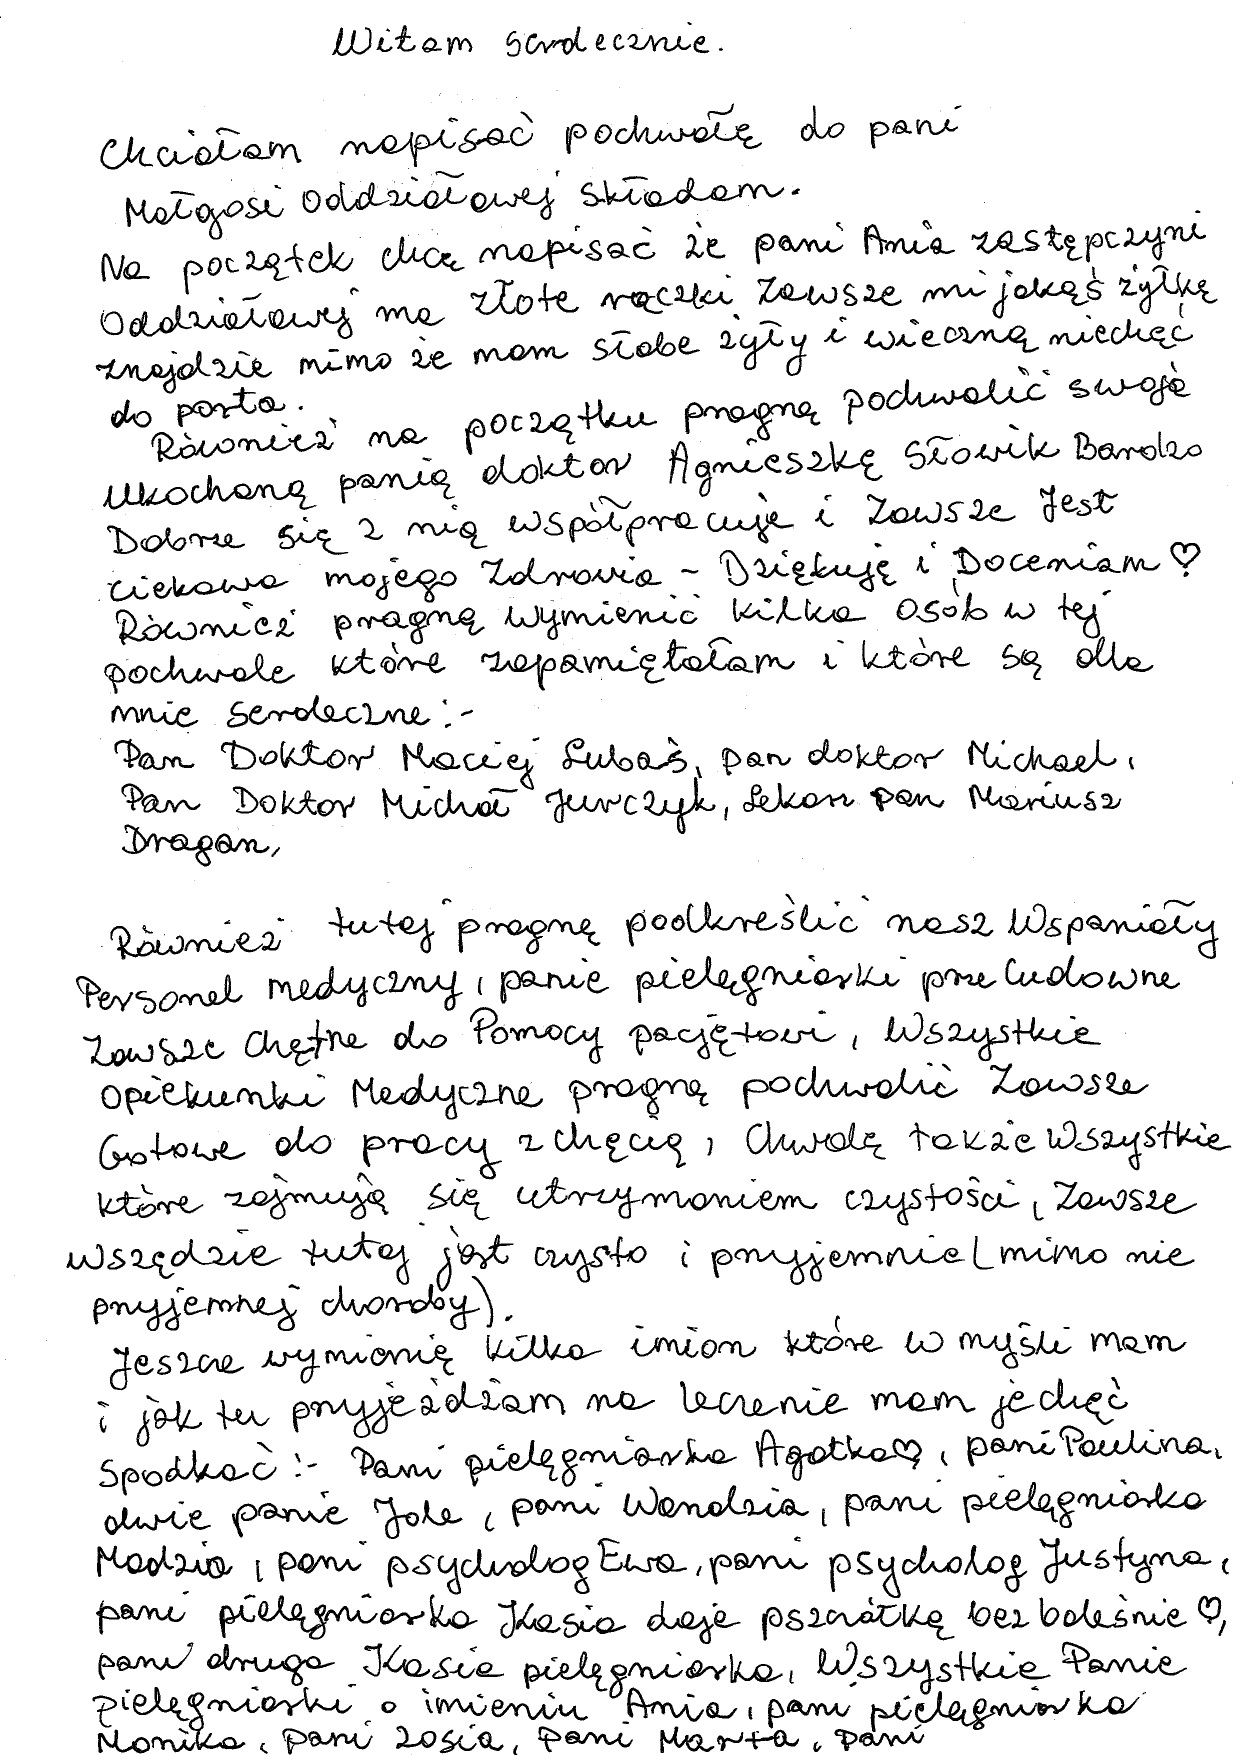 Witam serdecznie.
Chciałam napisać pochwałę do pani
Małgosi Oddziałowej składam.
Na początek chcę napisać że pani Ania zastępczyni
Oddziałowej ma złote rączki Zawsze mi jakąś żyłkę
znajdzie mimo że mam słabe żyły i wieczną niechęć
do porta.
Również na początku pragnę pochwalić swoją
Ukochaną panią doktor Agnieszkę Słowik Bardzo
Dobrze się z nią współpracuje i Zawsze Jest
ciekawa mojego Zdrowia - Dziękuję i Doceniam ♡
Również pragnę wymienić kilka osób w tej
pochwale które zapamiętałam i które są dla
mnie serdeczne :-
Pan Doktor Maciej Lubaś, pan doktor Michael,
Pan Doktor Michał Jurczyk, Lekarz pan Mariusz
Dragan,
Również tutaj pragnę podkreślić nasz Wspaniały
Personel medyczny, panie pielęgniarki przeCudowne
Zawsze Chętne do Pomocy pacjętowi, Wszystkie
Opiekunki Medyczne pragnę pochwalić Zawsze
Gotowe do pracy z chęcią, Chwalę także Wszystkie
które zajmują się utrzymaniem czystości, Zawsze
Wszędzie tutaj jest czysto i przyjemnie (mimo nie
przyjemnej choroby).
Jeszcze wymienię kilka imion które w myśli mam
i jak tu przyjeżdżam na leczenie mam je chęć
Spodkać :- Pani pielęgniarka Agatka♡, pani Paulina,
dwie panie Jole, pani Wandzia, pani pielęgniarka
Madzia, pani psycholog Ewa, pani psycholog Justyna,
pani pielęgniarka Kasia daje pszczółkę bez boleśnie ♡,
pani druga Kasia pielęgniarka, Wszystkie Panie
pielęgniarki o imieniu Ania, pani pielęgniarka
Monika, pani Zosia, Pani Marta, pani